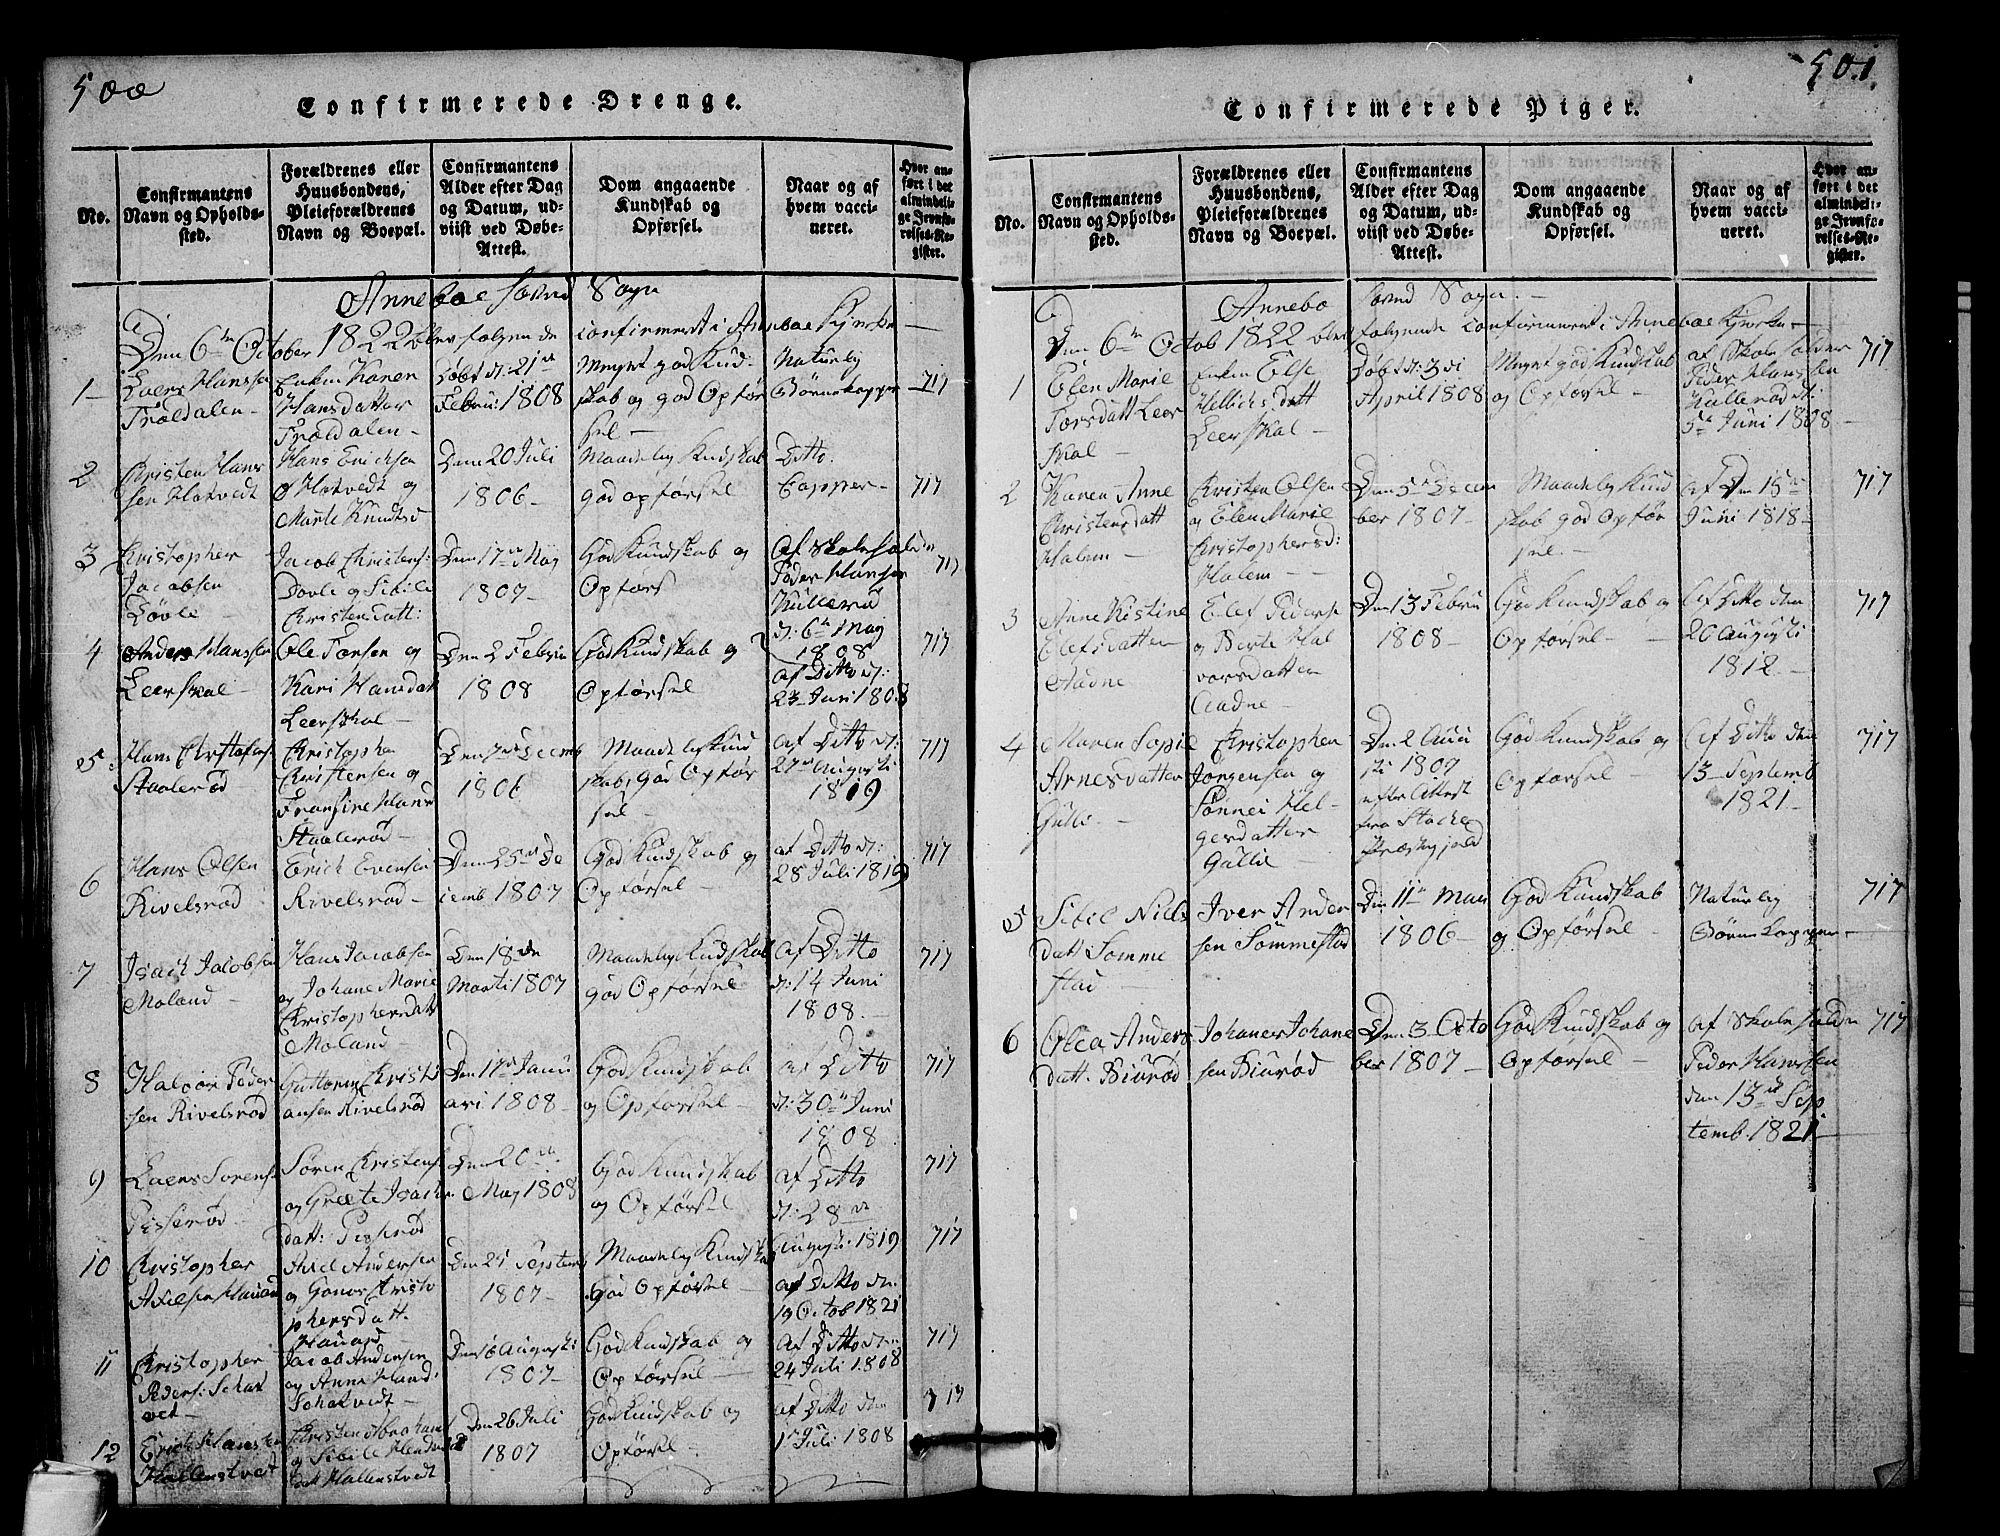 500
Confirmerede Drenge.
No.
Confirmantens
Navn og Opholds-
sted.
Forældrenes eller
Huusbondens,
Pleieforældrenes
Navn og Boepæl.
Confirmantens
Alder efter Dag
og Datum, ud-
viist ved Døbe-
Attest.
Dom angaaende
Kundskab og
Opførsel.
Naar og af
hvem vacci-
neret.
Hvor an-
ført i det
almindeli-
ge Jevnfø-
relses-Re-
gister.
Anneboe Sogn
Den 6te October 1822 blev følgende confirmert i Anneboe Kjerke
1
Laers Hanssen
Trældalen
Enken Karen
Hansdatter
Trældalen
Døbt d: 21de
Febru: 1808
Meget god Kund
skab og god Opfør
sel
Naturlig
Børnekopper
717
2
Christen Hans
sen Hotvedt
Hans Erichsen
Hotvedt og
Marte Knuds
Den 20 Juli
1806
Maadelig Kundskab
god opførsel
Ditto
Copper
717
3
Christopher
Jacobsen
Døvle
Jacob Christens:
Døvle og Sibille
Christensdatt:
Den 17de May
1807
God Kundskab og
Opførs
Af Skoleholder
Peder Hansen
Kullerød
d: 6te May
1808
717
4
Anders Hanssen
Leerskal
Ole Torsen og
Kari Hansdat
Leerskal
Den 2 Febru
1808
God Kundskab og
Opførsel
af Ditto d:
23 Juni 1808
717
5
Hans Christofers:
Staalerød
Christopher
Christensen og
Fransine Hansd
Staalerød
Den 7de Decemb
1806
Maadelig Kund
skab, god Opfør
sel
af Ditto d:
27de Augusti
1819
717
6
Hans Olsen
Rivelsrød
Erich Evensen
Rivelsrød
Den 25de De
cemb 1807
God Kundskab og
Opførsel
af Ditto d:
28 Juli 1819
717
7
Isach Jacobsen
Moland
Hans Jacobsen
og Johane Marie
Christophersdat
Moland
Den 18de
Marti 1807
Maadelig Kundskab
god Opførsel
af Ditto
d: 14 Juni
1808
717
8
Halvor Peder
sen Rivelsrød
Guttorm Christi
ansen Rivelsrød
Den 17de Janu
ari 1808
God Kundskab
og Opførsel
af Ditto
d: 30te Juni
1808
717
9
Laers Sorens
Pisserød
Søren Christens
og Greete Isach
datt: Pisserød
Den 20de
May 1808
God Kundskab
og Opførsel
af Ditto
d: 28de
Augusti 1819
717
10
Christopher
Axelsen Hauan
Axel Andersen
og Christo
phersdatt.
Den 21 Septem
1807
Maadelig Kundska
God Opførsel
af Ditto d:
19 Octob 1821
717
11
Christopher
Peders:
Jacob Andersen
og Anne Hansd
Den 16 Augusti
1807
God Kundskab og
Opførsel
Af Ditto d:
24 Juli 1808
717
12
Erich Hansen
Hallenstvedt
Christen Abraham
og Sibille
Hallenstvedt
Den 26 Juli
1807
God Kundskab og
Opførsel
af Ditto den
1te Juli 1808
717
501.
Confirmerede Piger.
No.
Confirmantens
Navn og Opholds-
sted.
Forældrenes eller
Huusbondens,
Pleieforældrenes
Navn og Boepæl.
Confirmantens
Alder efter Dag
og Datum, ud-
viist ved Døbe-
Attest.
Dom angaaende
Kundskab og
Opførsel.
Naar og af
hvem vacci-
neret.
Hvor an-
ført i det
almindeli-
ge Jevnfø-
relses-Re-
gister.
Annebo Sogn
Den 6te Octob 1822 blev følgende confirmert i Anneboe Kjerke
1
Elen Marie
Torsdatt Leer
skal
Enken Else
Hellichsdatt
Leerskal
Døbt d: 3di
April 1808
Meget god Kundskab
og Opførsel
af Skoleholder
Peder Hanssen
Kullerød d:
5te Juni 1808
717
2
Karen Anne
Christensdatt
Halem
Christen Olsen
og Elen Marie
Christophersd:
Halem
Den 5te Decem
ber 1807
Maadelig Kund
skab god Opfør
sel.
af Den 15de
Juni 1818
717
3
Anne Kistine
Elefsdatter
Aadne
Elef Peders
og Berte Hal
vorsdatter
Aadne
Den 13 Febru
1808
God Kundskab og
Opførsel
Af Ditto den
20 Augusti
1812
717
4
Maren Sopie
Arnesdatter
Gulli
Christopher
Jørgensen og
Sønnei Hel
gersdatter
Gullie
Den 2 Augu
sti 1807
efter Attest
fra Stocke
Præstegjeld
God Kundskab og
Opførsel
Af Ditto den
13 Septemb
1821
717
5
Sibil Niels
datt Somme
stad
Iver Ander
sen Sommestad
Den 11te Mai
1806
God Kundskab
og Opførsel
Naturlig
Børnekopper
717
6
Olea Anders
datt. Biurød
Johanes Johane
sen Biurød
Den 3 Octo
ber 1807
God Kundskab og
Opførsel
af Skoleholder
Peder Hanssen
den 13de Sep
temb. 1821
717